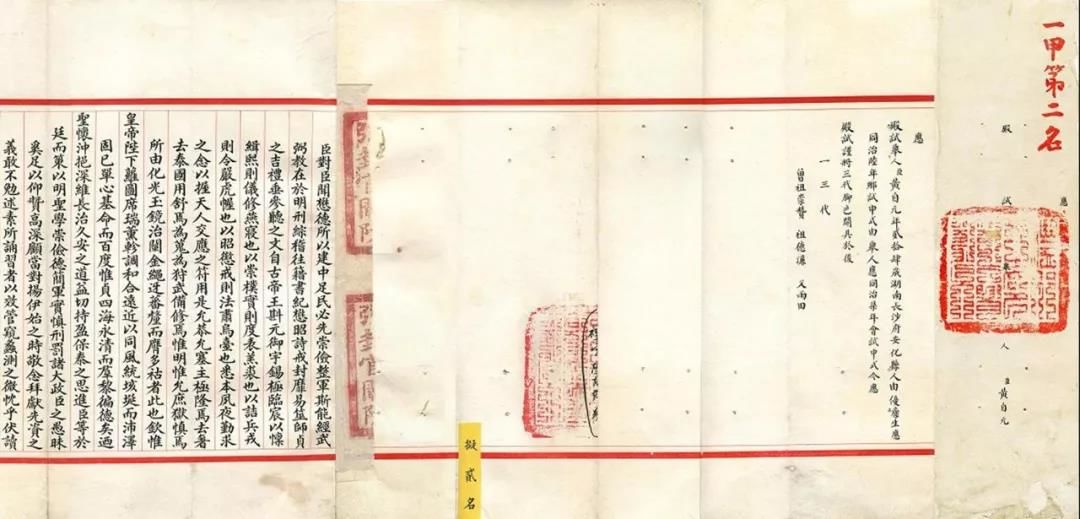 一甲第二名
應
殿試舉人臣黃自元
應
殿試舉人臣黃自元年貳拾肆歲湖南長沙府安化縣人由優廩生應
同治陸年鄉試中式由舉人應同治柒年會試中式今應
殿試謹將三代腳色開具於後
一三代
曾祖崇贊 祖德濂 父雨田
擬貳名
彌封官關防
彌封官關防
臣對臣聞懋德所以建中足民必先崇儉整軍斯能經武
弼教在於明刑綜稽往籍書紀懋昭詩戒封靡易筮師貞
之吉禮垂參聽之文自古帝王斟元御宇錫極臨宸以懍
緝熙則儀修燕寢也以崇樸實則度表羔裘也以詰兵戎
則令嚴虎幄也以昭懲戒則法肅烏臺也悉本夙夜勤求
之念以握天人交應之符用是允恭允塞主極隆焉去奢
去泰國用舒焉為蒐為狩武備修焉惟明惟允庶獄慎焉
所由化光玉鏡治闡金繩迓蕃釐而膺多祜者此也欽惟
皇帝陛下蘿圖席瑞薰軫調和合遠近以同風統垓埏而沛澤
固已單心基命而百度惟貞四海永清而羣黎徧德矣迺
聖懷沖挹深維長治久安之道益切持盈保泰之思進臣等於
廷而策以明聖學崇儉德簡軍實慎刑罰諸大政臣之愚昧
奚足以仰贊高深顧當對揚伊始之時敬念拜獻先資之
義敢不勉述素所誦習者以效管窺蠡測之微忱乎伏讀